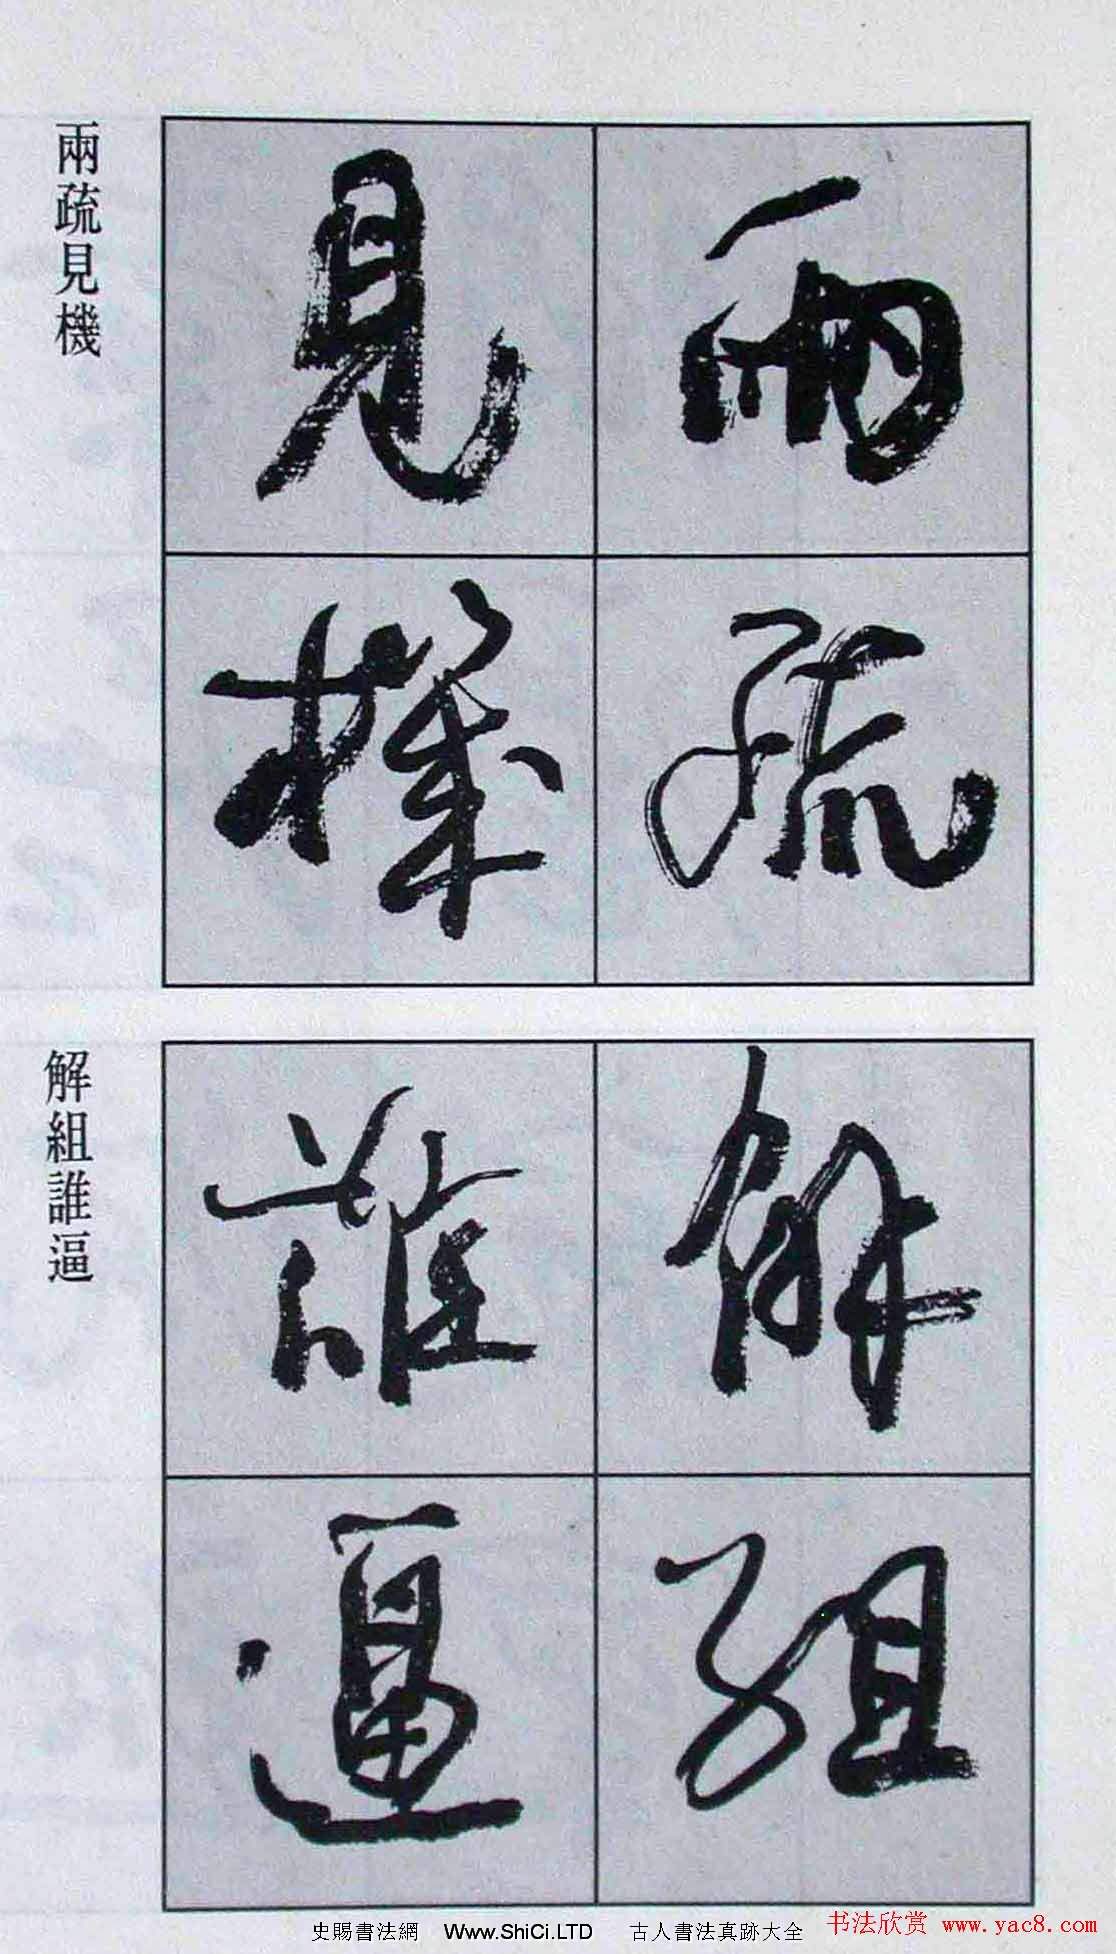 兩疏見機
兩疏
見機
解組誰逼
解組
誰逼
史賜書法網 Www.ShiCi.LTD 古人書法真跡大全
书法欣赏 www.yac8.com